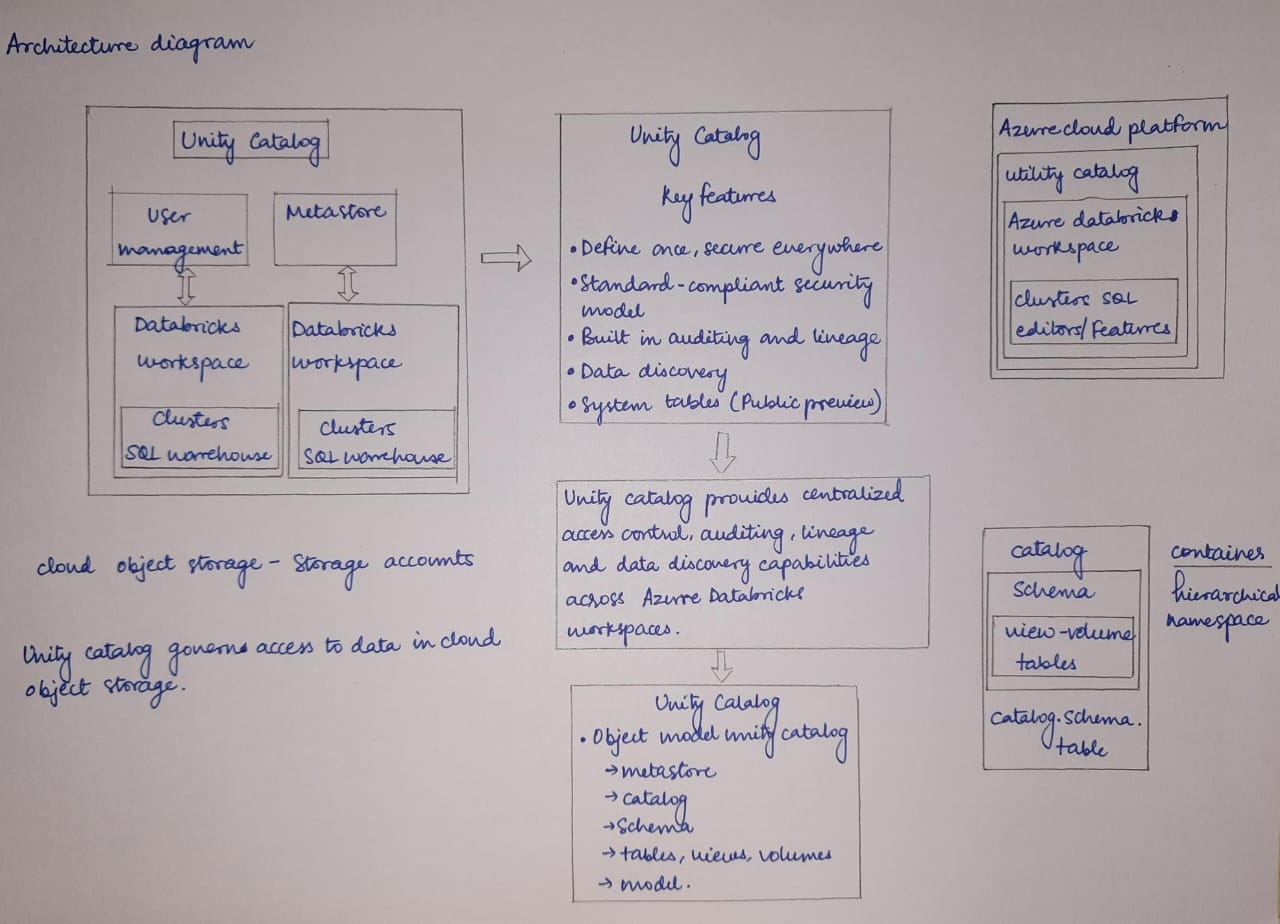 Architecture diagram
Unity Catalog
User
management
Metastore
Databricks
workspace
Clusters
SQL warehouse
Databricks
workspace
Clusters
SQL warehouse
cloud object storage - Storage accounts
Unity catalog governs access to data in cloud
object storage.
Unity Catalog
Key features
• Define once, secure everywhere
• Standard-compliant security
model
• Built in auditing and lineage
• Data discovery
• System tables (Public preview)
Unity catalog provides centralized
access control, auditing, lineage
and data discovery capabilities
across Azure Databricks
workspaces.
Unity Catalog
• Object model unity catalog
→ metastore
→ catalog
→ Schema
→ tables, views, volumes
→ model.
Azure cloud platform
utility catalog
Azure databricks
workspace
clusters SQL
editors/Features
catalog
Schema
view-volume
tables
catalog.schema.
table
containes
hierarchical
namespace